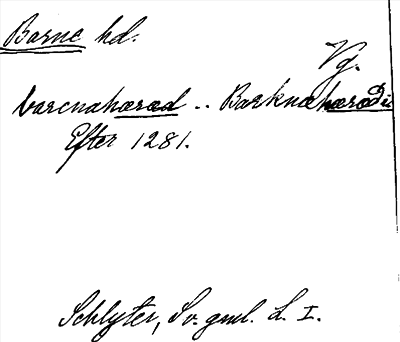 Barne hd.
Vg.
barcnahæræd .. Barknahærædi
Efter 1281.
Schlyter, Sv. gml. L. I.